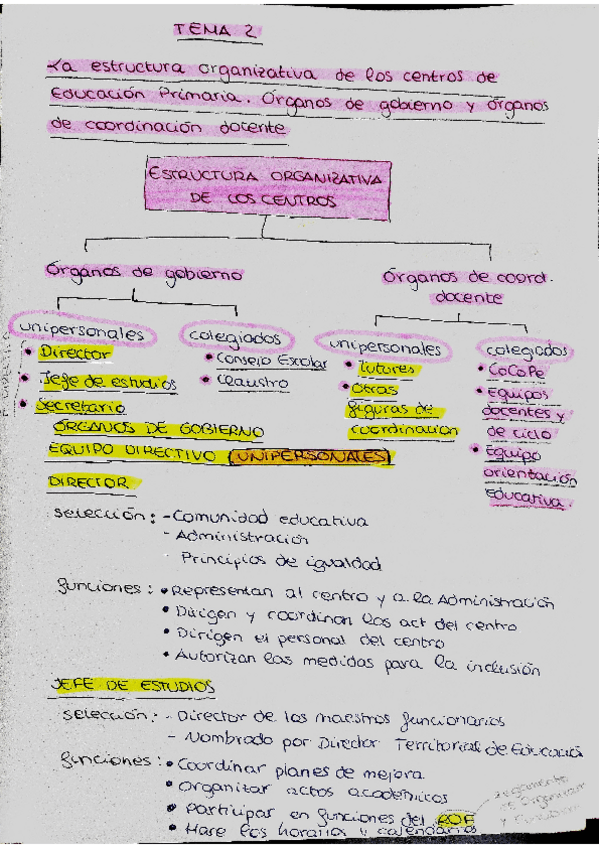 TEMA 2
La estructura organizativa de los centros de
Educación Primaria. Órganos de gobierno y órganos
de coordinación docente
ESTRUCTURA ORGANIZATIVA
DE LOS CENTROS
Órganos de gobierno
Órganos de coord.
docente
unipersonales
• Director
• Jefe de estudios
• Secretario
colegiados
• Consejo Escolar
• Claustro
unipersonales
• Tutores
• Otras
figuras de
coordinación
colegiados
• CoCoPe
• Equipos
docentes y
de ciclo
• Equipo
orientación
educativa.
ÓRGANOS DE GOBIERNO
EQUIPO DIRECTIVO (UNIPERSONALES)
DIRECTOR
selección: - Comunidad educativa
- Administración
Principios de igualdad
funciones: • Representan al centro y a la Administración
• Dirigen y coordinan las act del centro
• Dirigen el personal del centro
• Autorizan las medidas para la inclusión
JEFE DE ESTUDIOS
selección: - Director de los maestros funcionarios
- Nombrado por Director Territorial de Educación
funciones: • Coordinar planes de mejora
• Organizar actos académicos
• Participar en funciones del ROF
• Hare los horarios y calendarios